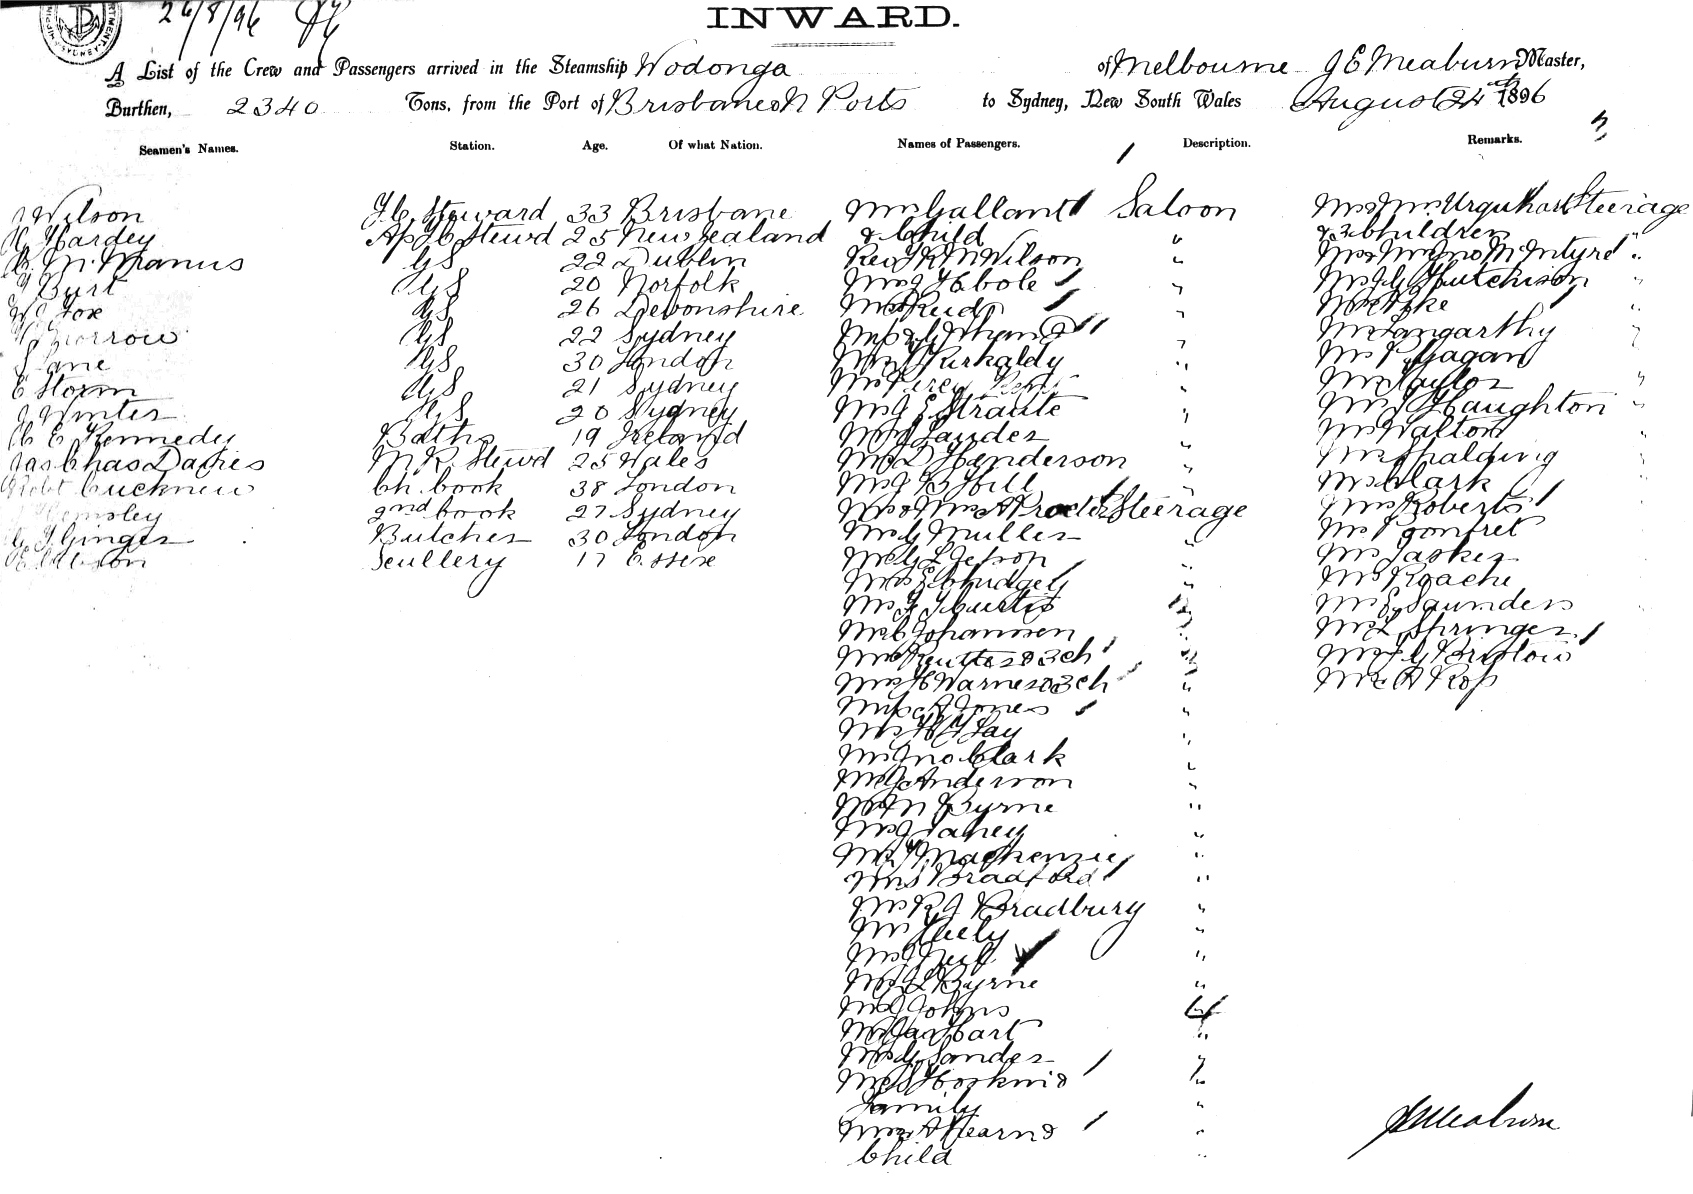 26/8/96
INWARD.
A List of the Crew and Passengers arrived in the Steamship Wodonga of Melbourne J E Meaburn Master,
Burthen, 2340 Tons, from the Port of Brisbane & N Ports to Sydney, New South Wales August 24th 1896
Seamen's Names. Station. Age. Of what Nation. Names of Passengers. Description. Remarks.
Wilson F.C. Steward 33 Brisbane Mrs Gallant Saloon Mr & Mrs Urquhart Steerage
H Hardey As F.C. Stewd 25 New Zealand & Child " & 3 Children
McManus GS 22 Dublin Rev Wilson " Mr & Mrs Jno McIntyre "
Burt GS 20 Norfolk Mrs J Hbole " Mr Hutchison
W Fox GS 26 Devonshire Mrs Reid "
Morrow GS 22 Sydney " Mr Langarthy
Lane GS 30 London Kirkaldy " Mr Gagan
E Storm GS 21 Sydney Mr Percy " Mr Taylor "
J Winter GS 20 Sydney Mr G E Straute " Mr Haughton "
C E Kennedy Baths 19 Ireland Mr Lauder Mr Walton
Jas Chas Davies M.R. Stewd 25 Wales Mr D Henderson " Mr Spalding
Robt Cucknew Ch. Cook 38 London Mr J B Hill " Mr Clark
Hemsley 2nd Cook 27 Sydney Mr & Mrs A Procter Steerage Mrs Roberts
G F Ginger Butcher 30 London Mr G Muller Mr Pomfret
Scullery 17 Essex Mr G L Jepson " Mr Tasker
Mrs E Chudgely " Mr Roache
Mr F Curtis Mr E Saunders
Mr C Johannsen Mr L Springer
Mrs Reutter & 3 ch Mr F G Bristow
Mrs H Warner & 3 ch " Mr A Ross
Miss A Jones "
Mr H Hay "
Mr Jno Clark "
Mr G Anderson "
Mr M Byrne "
Mr J Fahey "
Mr Mackenzie "
Mrs Bradford "
Mr R J Bradbury "
Mr Keely "
"
Mr L Byrne "
Mr J Johns 4
Mr Jas Hart "
Mr G Sander
Mrs S Hosken &
Family "
Mrs A Hearn & "
Child "
J E Meaburn